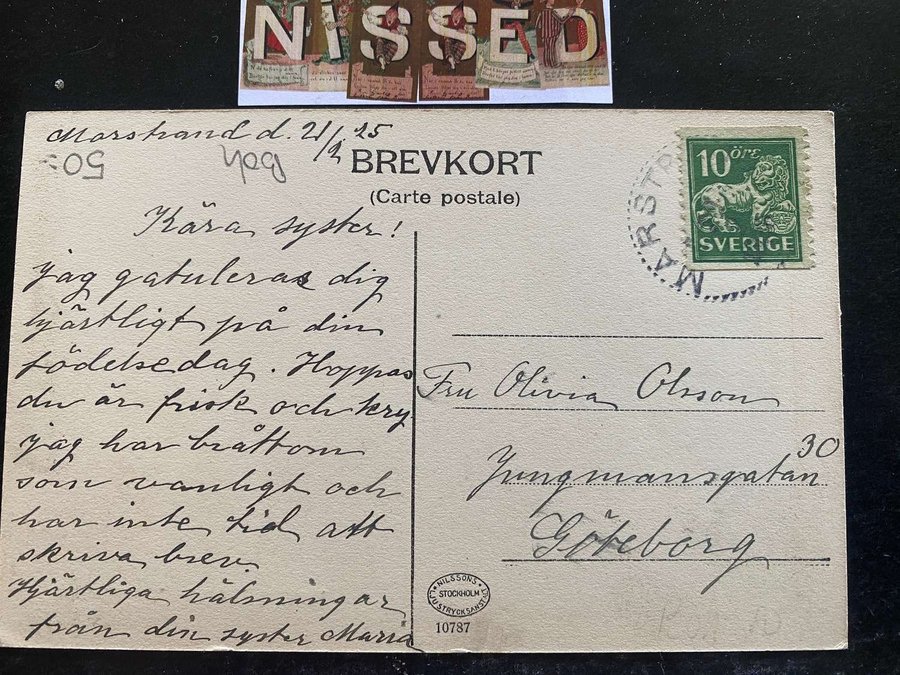 NISSED
Marstrand d. 21/2 25
50:-
Boh
BREVKORT
(Carte postale)
10 öre
SVERIGE
MARSTR
Kära syster!
jag gatuleras dig
hjärtligt på din
födelsedag. Hoppas
du är frisk och kry
jag har bråttom
som vanligt och
har inte tid att
skriva brev
Hjärtliga hälsningar
från din syster Maria
Fru Olivia Olsson
Jungmansgatan 30
Göteborg
NILSSONS LJUSTRYCKSANST.
STOCKHOLM
10787